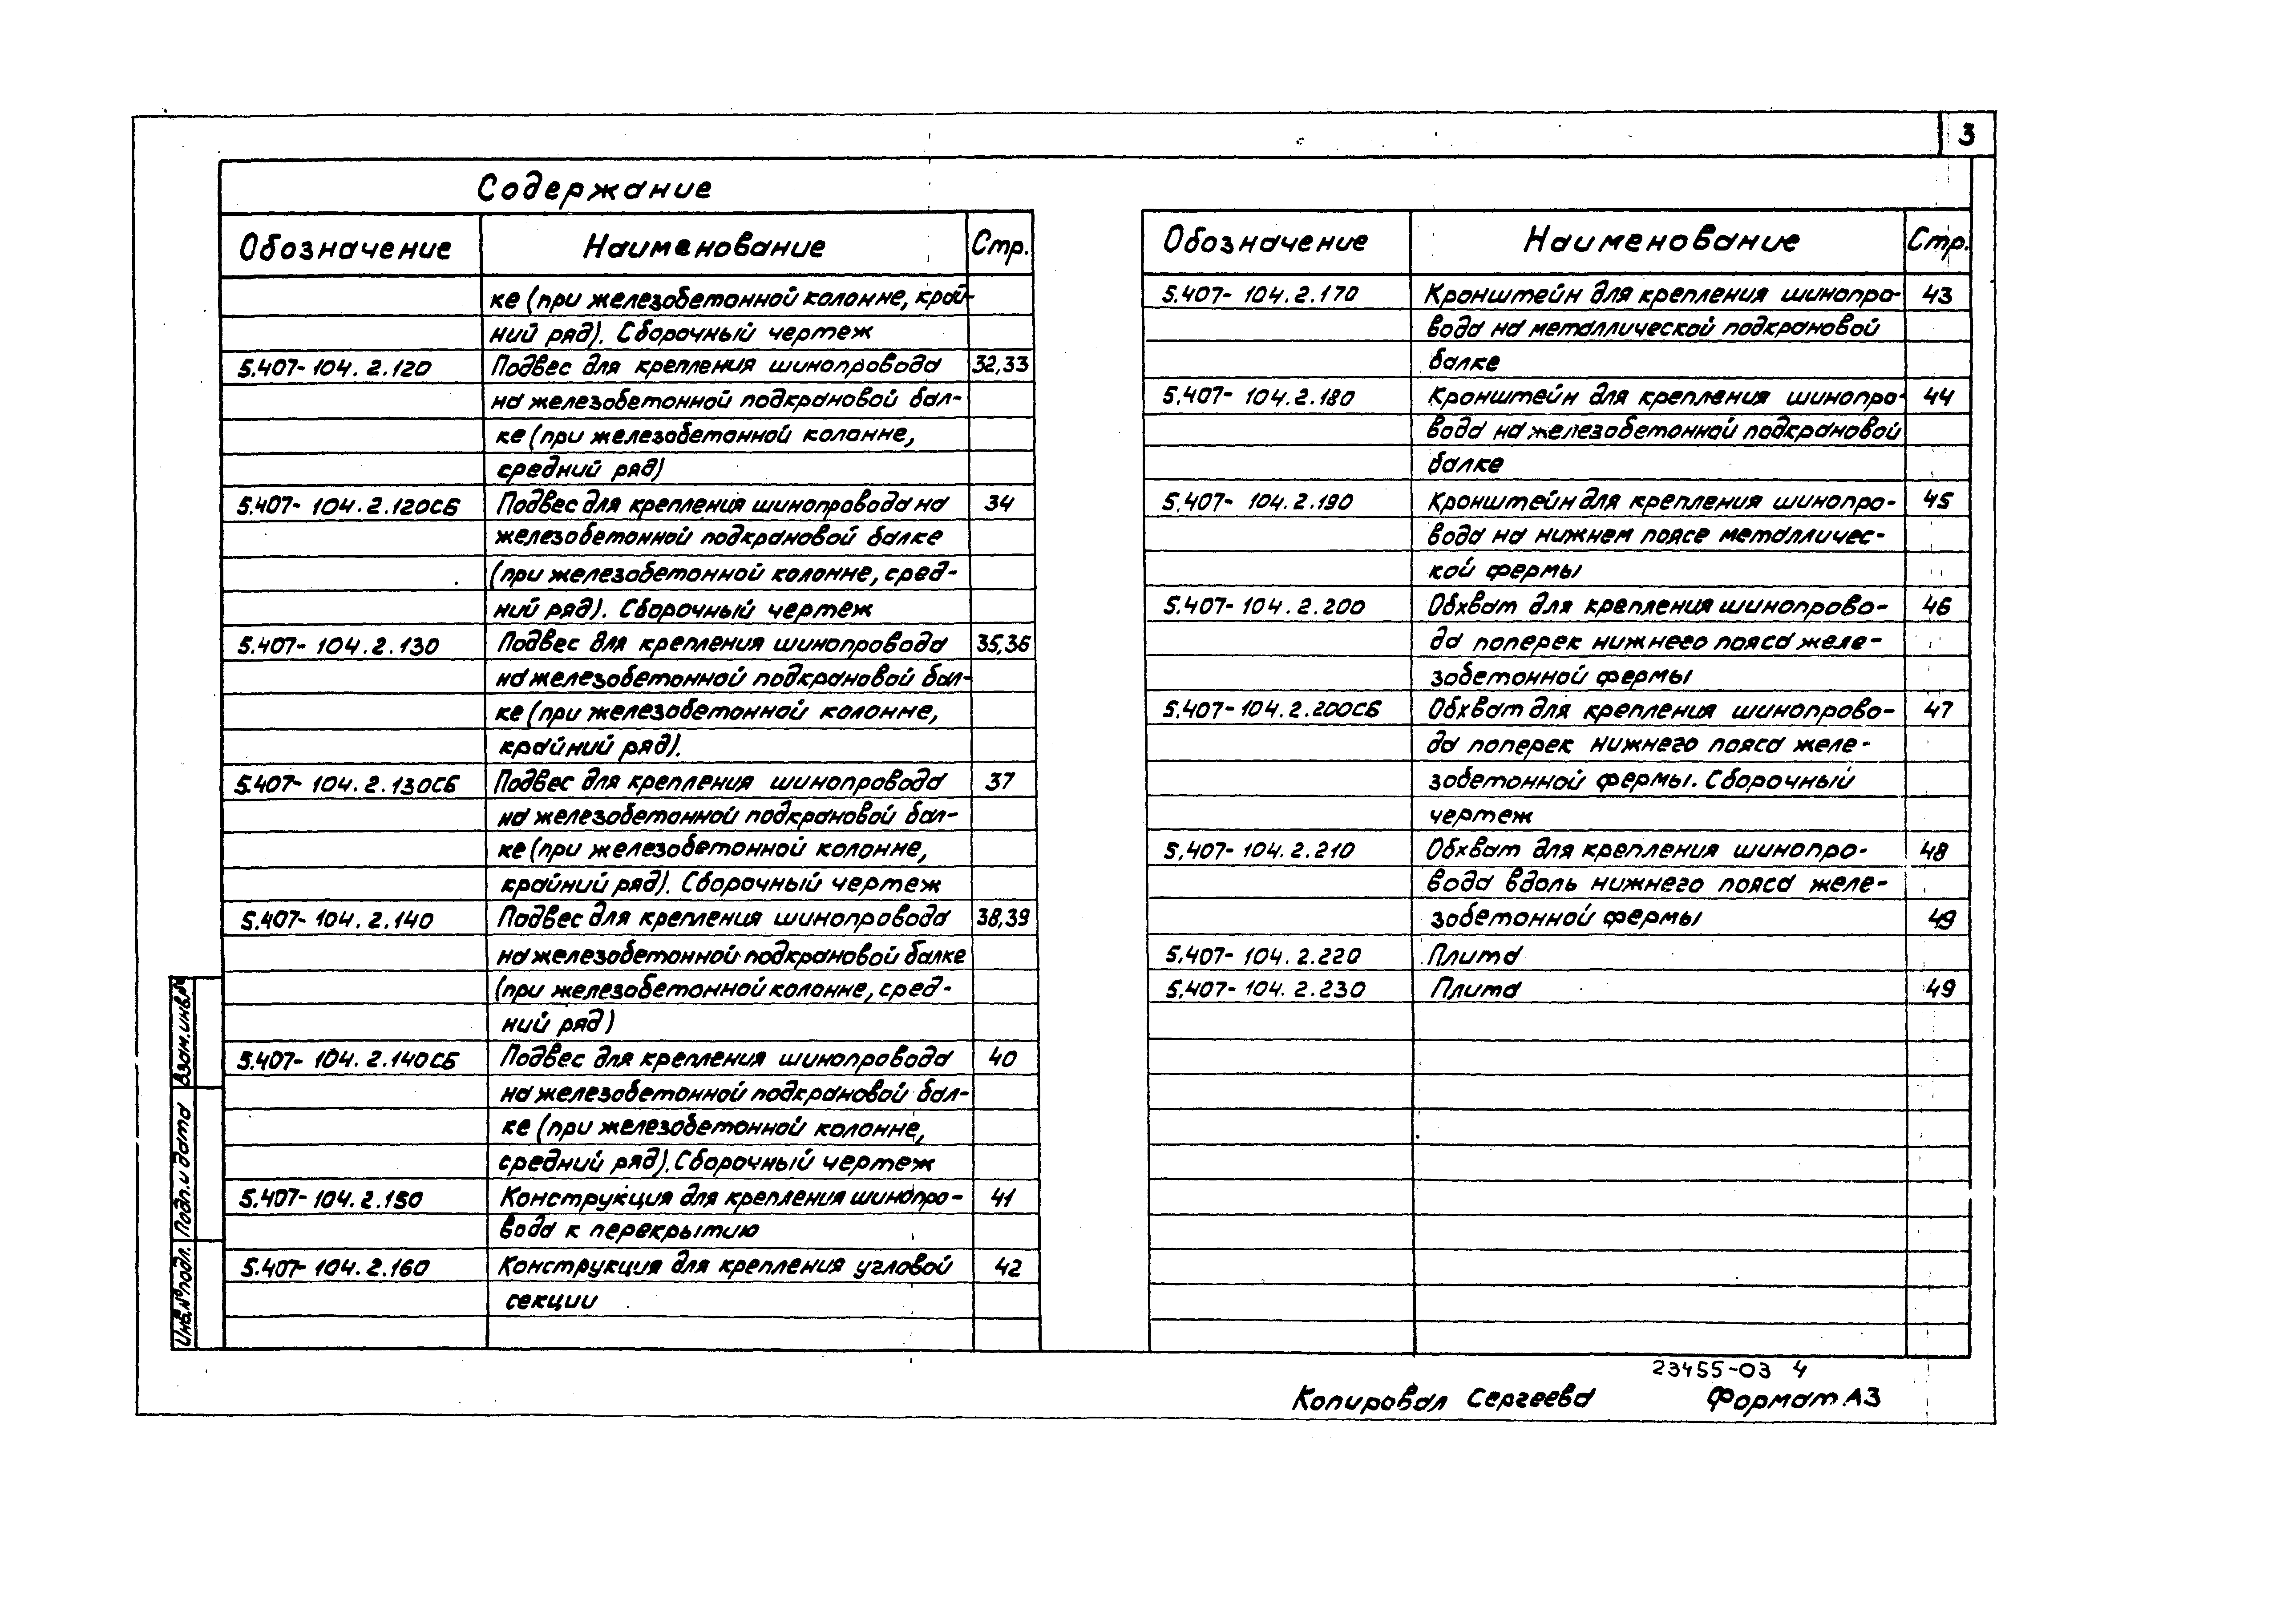 3
Содержание
Обозначение Наименование Стр.
ке (при железобетонной колонне, край-
ний ряд). Сборочный чертеж
5.407-104.2.120 Подвес для крепления шинопровода 32,33
на железобетонной подкрановой бал-
ке (при железобетонной колонне,
средний ряд)
5.407-104.2.120СБ Подвес для крепления шинопровода на 34
железобетонной подкрановой балке
(при железобетонной колонне, сред-
ний ряд). Сборочный чертеж
5.407-104.2.130 Подвес для крепления шинопровода 35,36
на железобетонной подкрановой бал-
ке (при железобетонной колонне,
крайний ряд).
5.407-104.2.130СБ Подвес для крепления шинопровода 37
на железобетонной подкрановой бал-
ке (при железобетонной колонне,
крайний ряд). Сборочный чертеж
5.407-104.2.140 Подвес для крепления шинопровода 38,39
на железобетонной подкрановой балке
(при железобетонной колонне, сред-
ний ряд)
5.407-104.2.140СБ Подвес для крепления шинопровода 40
на железобетонной подкрановой бал-
ке (при железобетонной колонне,
средний ряд). Сборочный чертеж
5.407-104.2.150 Конструкция для крепления шинопро- 41
вода к перекрытию
5.407-104.2.160 Конструкция для крепления угловой 42
секции
Обозначение Наименование Стр.
5.407-104.2.170 Кронштейн для крепления шинопро- 43
вода на металлической подкрановой
балке
5.407-104.2.180 Кронштейн для крепления шинопро- 44
вода на железобетонной подкрановой
балке
5.407-104.2.190 Кронштейн для крепления шинопро- 45
вода на нижнем поясе металличес-
кой фермы
5.407-104.2.200 Обхват для крепления шинопрово- 46
да поперек нижнего пояса желе-
зобетонной фермы
5.407-104.2.200СБ Обхват для крепления шинопрово- 47
да поперек нижнего пояса желе-
зобетонной фермы. Сборочный
чертеж
5.407-104.2.210 Обхват для крепления шинопро- 48
вода вдоль нижнего пояса желе-
зобетонной фермы 49
5.407-104.2.220 Плита
5.407-104.2.230 Плита 49
Взам.инв.№
Подп.и дата
Инв.№подл.
23455-03 4
Копировал Сергеева Формат А3